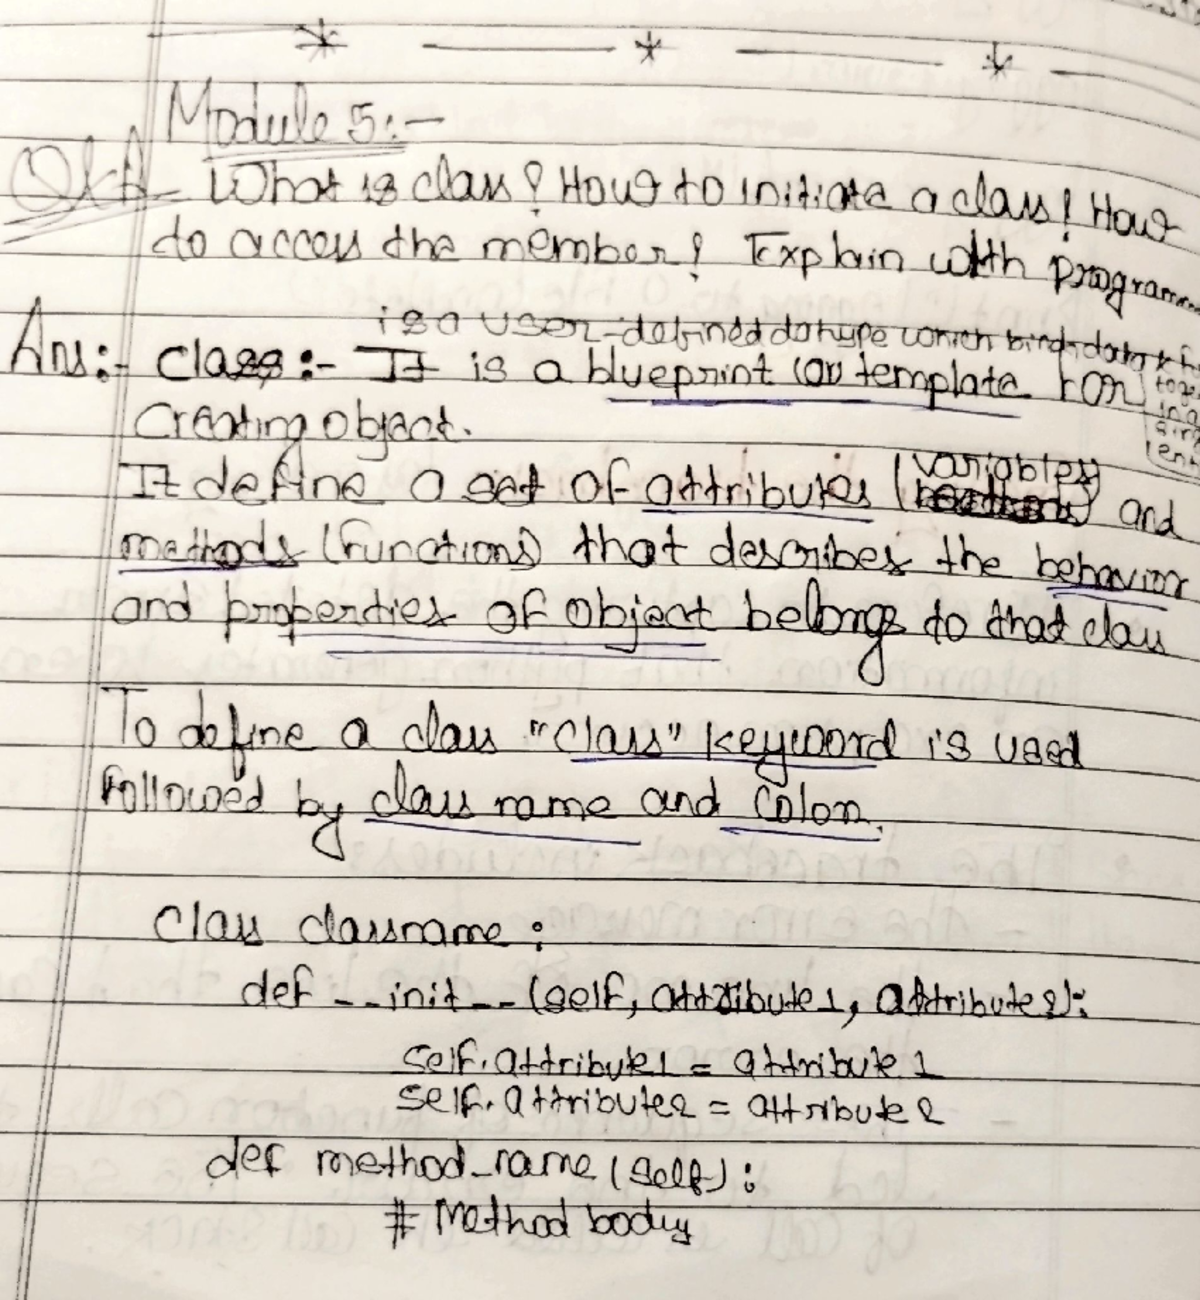 Module 5:-
Q1A What is class? How to initiate a class? How
to access the member? Explain with program
is a user-defined datatype which binds data & f
Ans:- Class:- It is a blueprint (or template for
toge
in a
sing
ent
Creating object.
It define a set of attributes (variables) and
methods (functions) that describes the behavior
and properties of object belongs to that class
To define a class "class" keyword is used
followed by class name and colon.
class classname:
def __init__(self, attribute1, attribute2):
self.attribute1 = attribute1
self.attribute2 = attribute2
def method_name (self):
# Method body